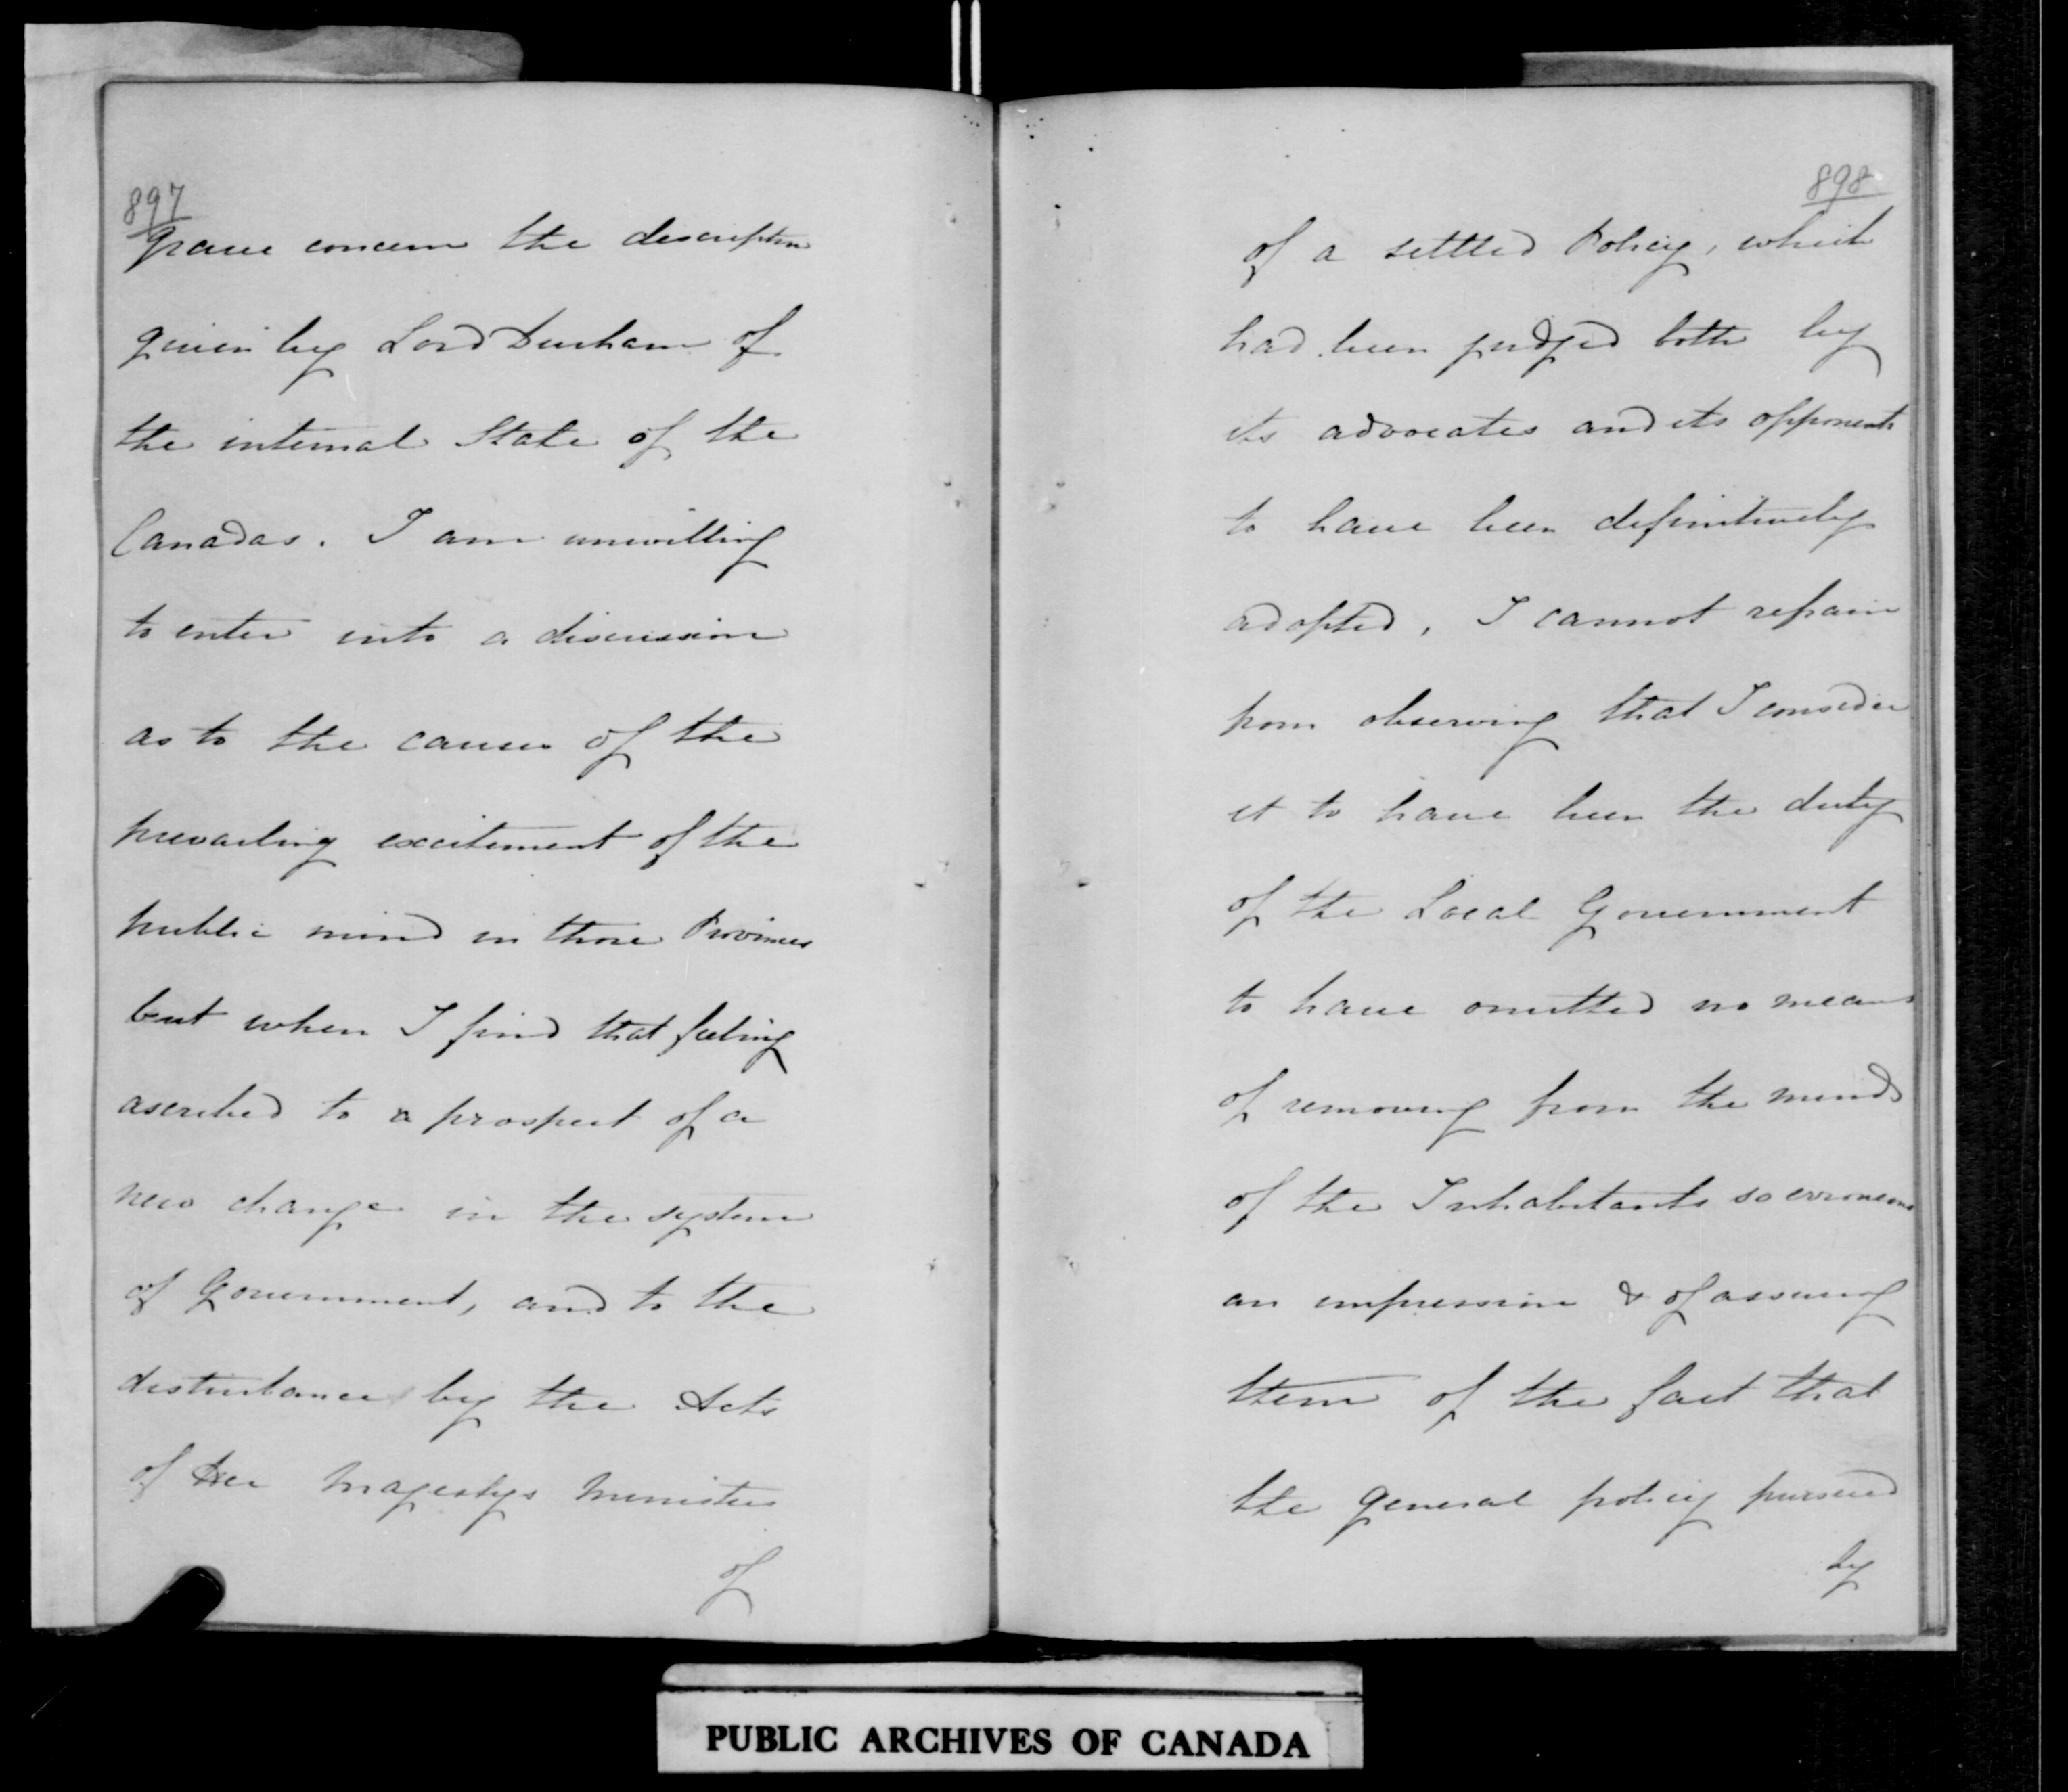 897
grave concern the description
given by Lord Durham of
the internal State of the
Canadas. I am unwilling
to enter into a discussion
as to the causes of the
prevailing excitement of the
public mind in those Provinces
but when I find that feeling
ascribed to a prospect of a
new change in the system
of Government, and to the
disturbance by the Acts
of Her Majestys Ministers
of
898
of a settled Policy, which
had been judged both by
its advocates and its opponents
to have been definitively
adopted, I cannot refrain
from observing that I consider
it to have been the duty
of the Local Government
to have omitted no means
of removing from the minds
of the Inhabitants so erroneous
an impression & of assuring
them of the fact that
the general policy pursued
by
PUBLIC ARCHIVES OF CANADA